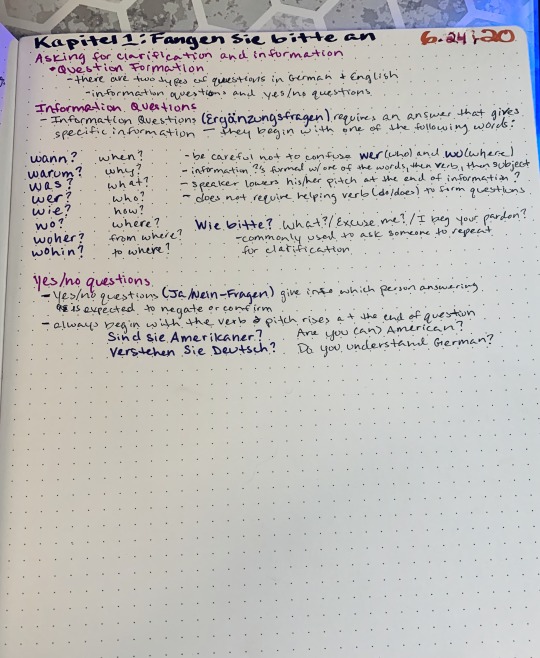 Kapitel 1: Fangen Sie bitte an 6.24.20
Asking for clarification and information
• Question Formation
- there are two types of questions in German & English
- information questions and yes/no questions
Information Questions
- Information Questions (Ergänzungsfragen) requires an answer that gives
specific information - they begin with one of the following words:
wann? when? - be careful not to confuse wer (who) and wo (where)
warum? why? - information ?'s formed w/ one of the words, then verb, then subject
was? what? - speaker lowers his/her pitch at the end of information ?
wer? who? - does not require helping verb (do/does) to form questions
wie? how?
wo? where? Wie bitte? What?/Excuse me?/I beg your pardon?
woher? from where? - commonly used to ask someone to repeat
wohin? to where? for clarification
Yes/no questions
- Yes/no questions (Ja/Nein-Fragen) give info which person answering
is expected to negate or confirm
- always begin with the verb & pitch rises at the end of question
Sind sie Amerikaner? Are you (an) American?
Verstehen Sie Deutsch? Do you understand German?